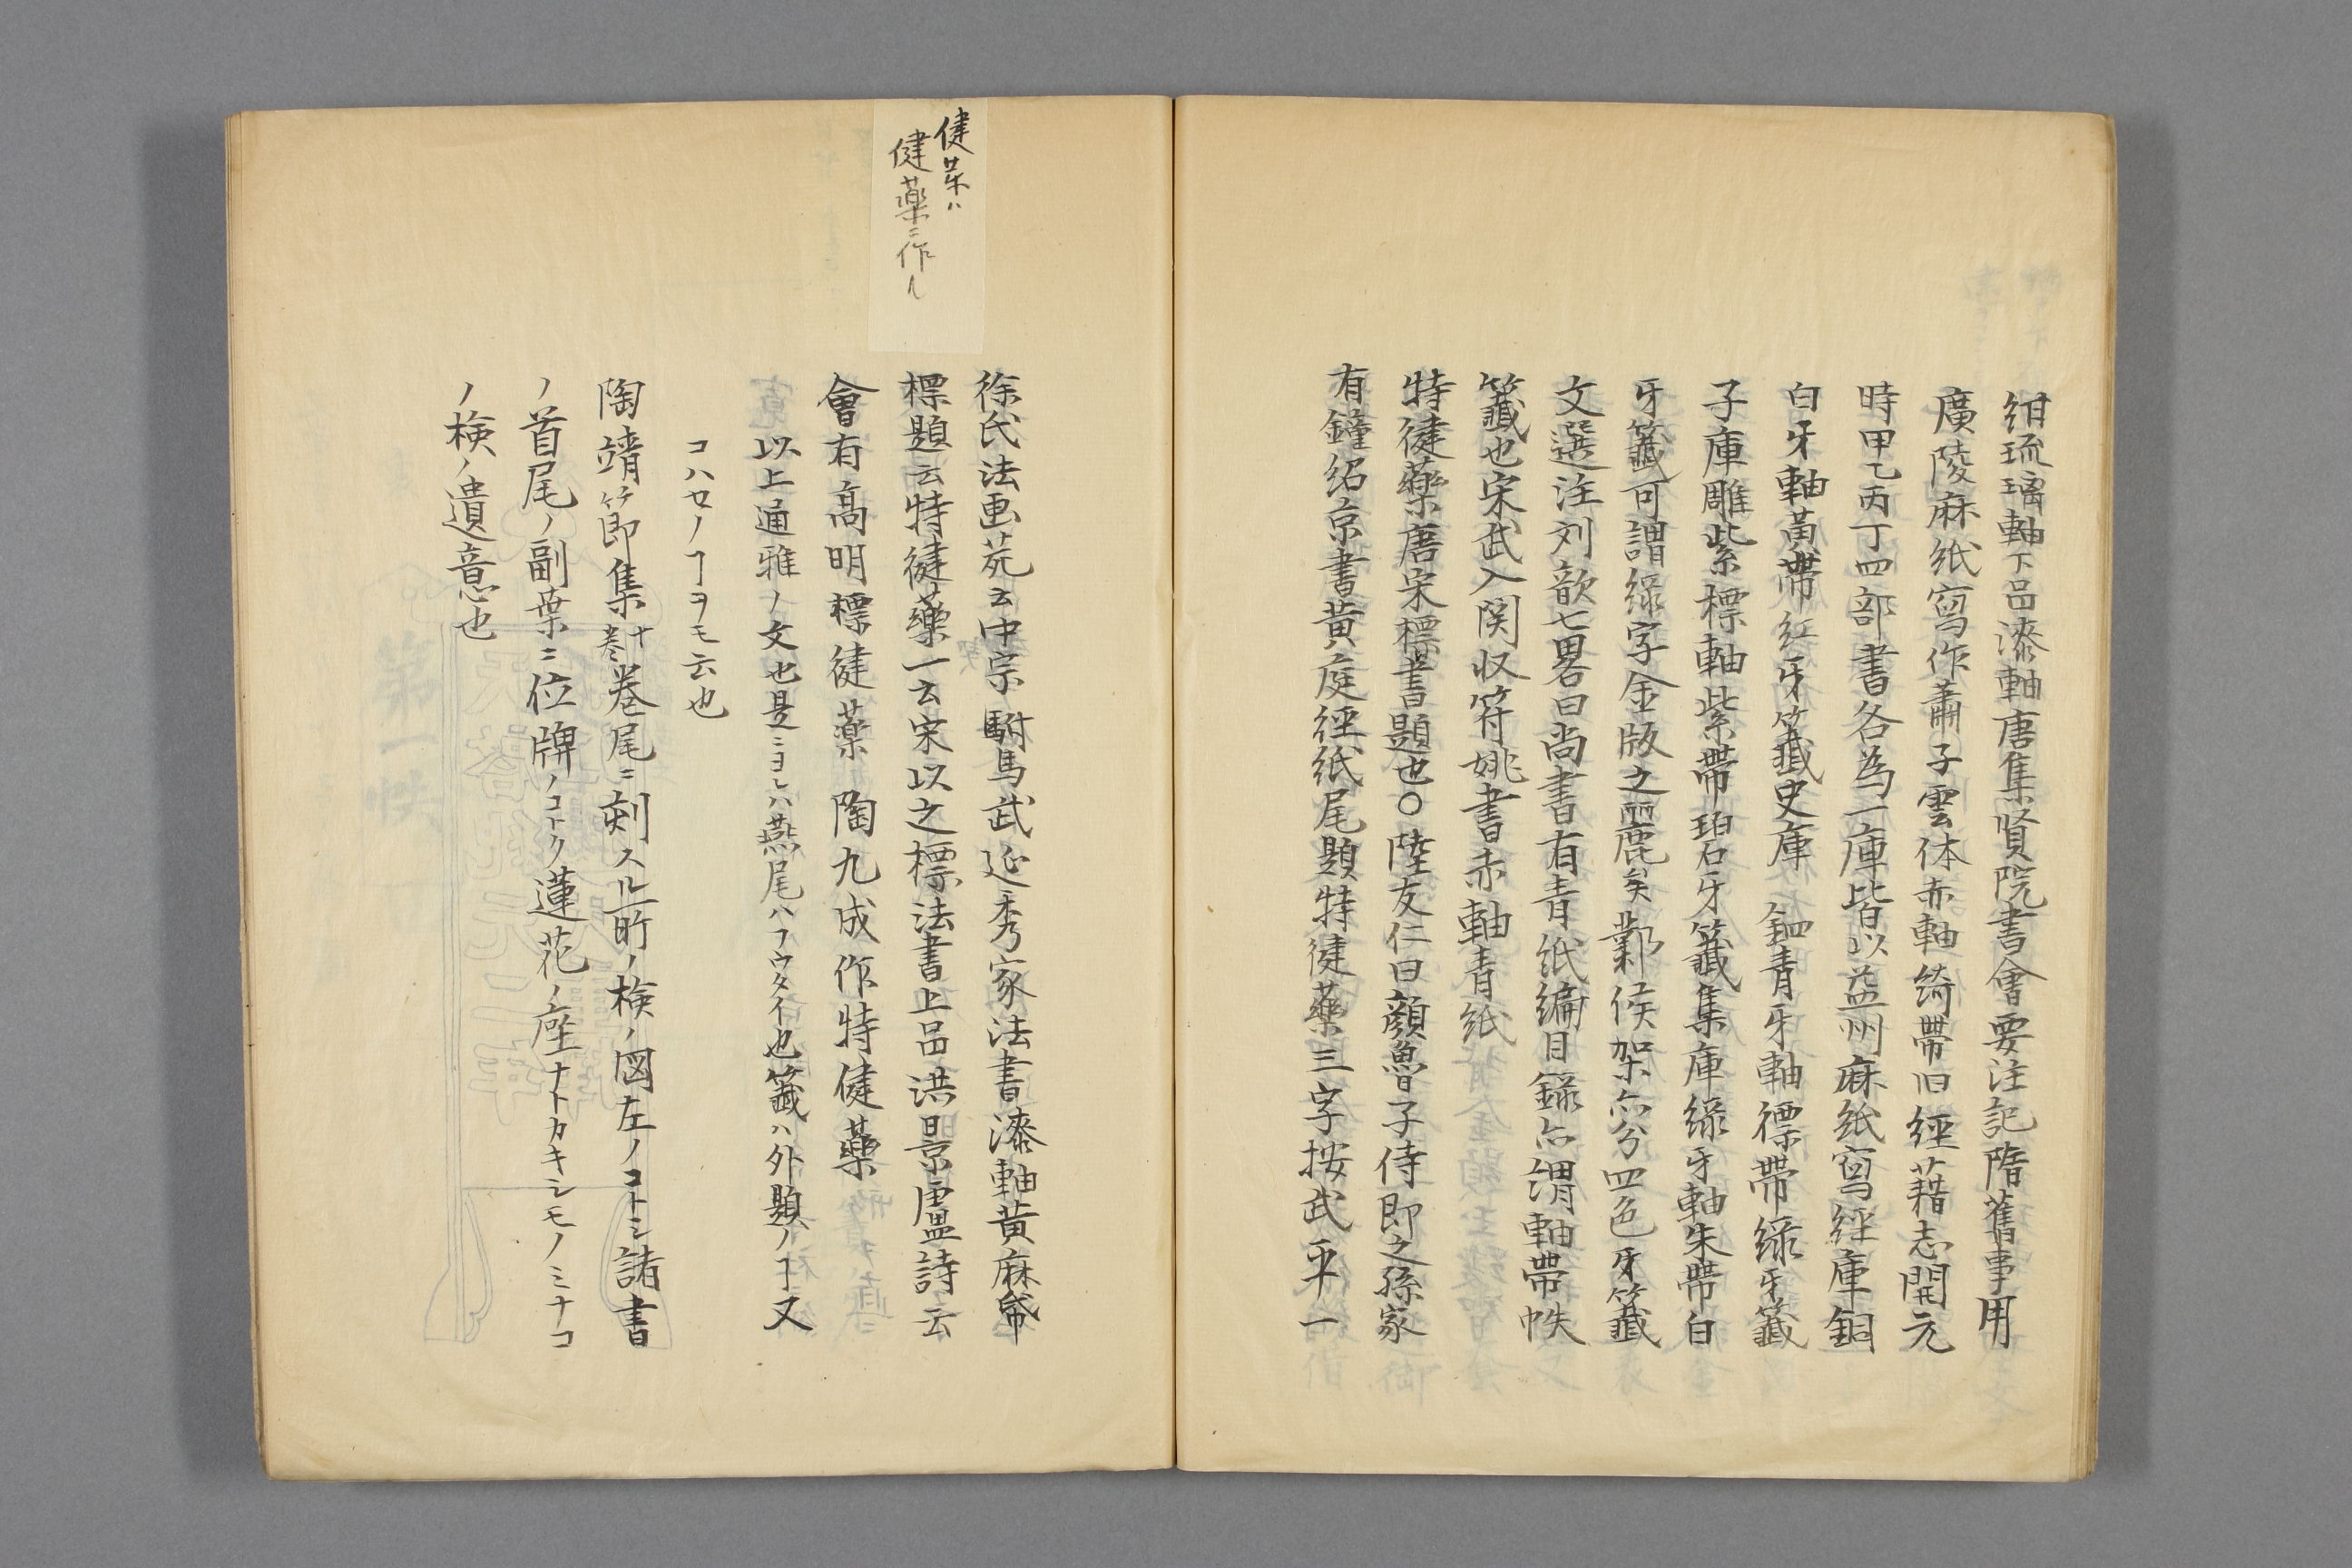 紺琉璃軸下品漆軸唐集賢院書會要注記隋舊事用
廣陵麻紙寫作蕭子雲体赤軸綺帶旧經藉志開元
時甲乙丙丁四部書各為一庫皆以益州麻紙寫經庫鈿
白牙軸黃帶紅牙籤史庫鈿青牙軸標帶緑牙籤
子庫雕紫標軸紫帶碧石牙籤集庫緑牙軸朱帶白
牙籤可謂緑字金版之麗矣鄴侯架亦分四色牙籤
文選注刘歆七畧曰尚書有青紙編目録亦謂軸帶帙
籤也宋武入関収符姚書赤軸青紙
特健藥唐宋標書題也〇陸友仁曰顔魯子侍郎之孫家
有鐘紹京書黄庭經紙尾題特健藥三字按武平一
健茱ハ
健藥ニ作ル
徐氏法画苑云中宗駙馬武延秀家法書漆軸黄麻紙
標題云特健藥一云宋以之標法書上品洪景盧詩云
會有高明標健薬陶九成作特健藥
以上通雅ノ文也是ニヨレハ燕尾ハフウタイ也籤ハ外題ノヿ又
コハセノヿヲモ云也
陶靖節集十巻巻尾ニ刻スル所ノ検ノ図左ノコトシ諸書
ノ首尾ノ副葉ニ位牌ノコトク蓮花ノ座ナトカキシモノミナコ
ノ検ノ遺意也